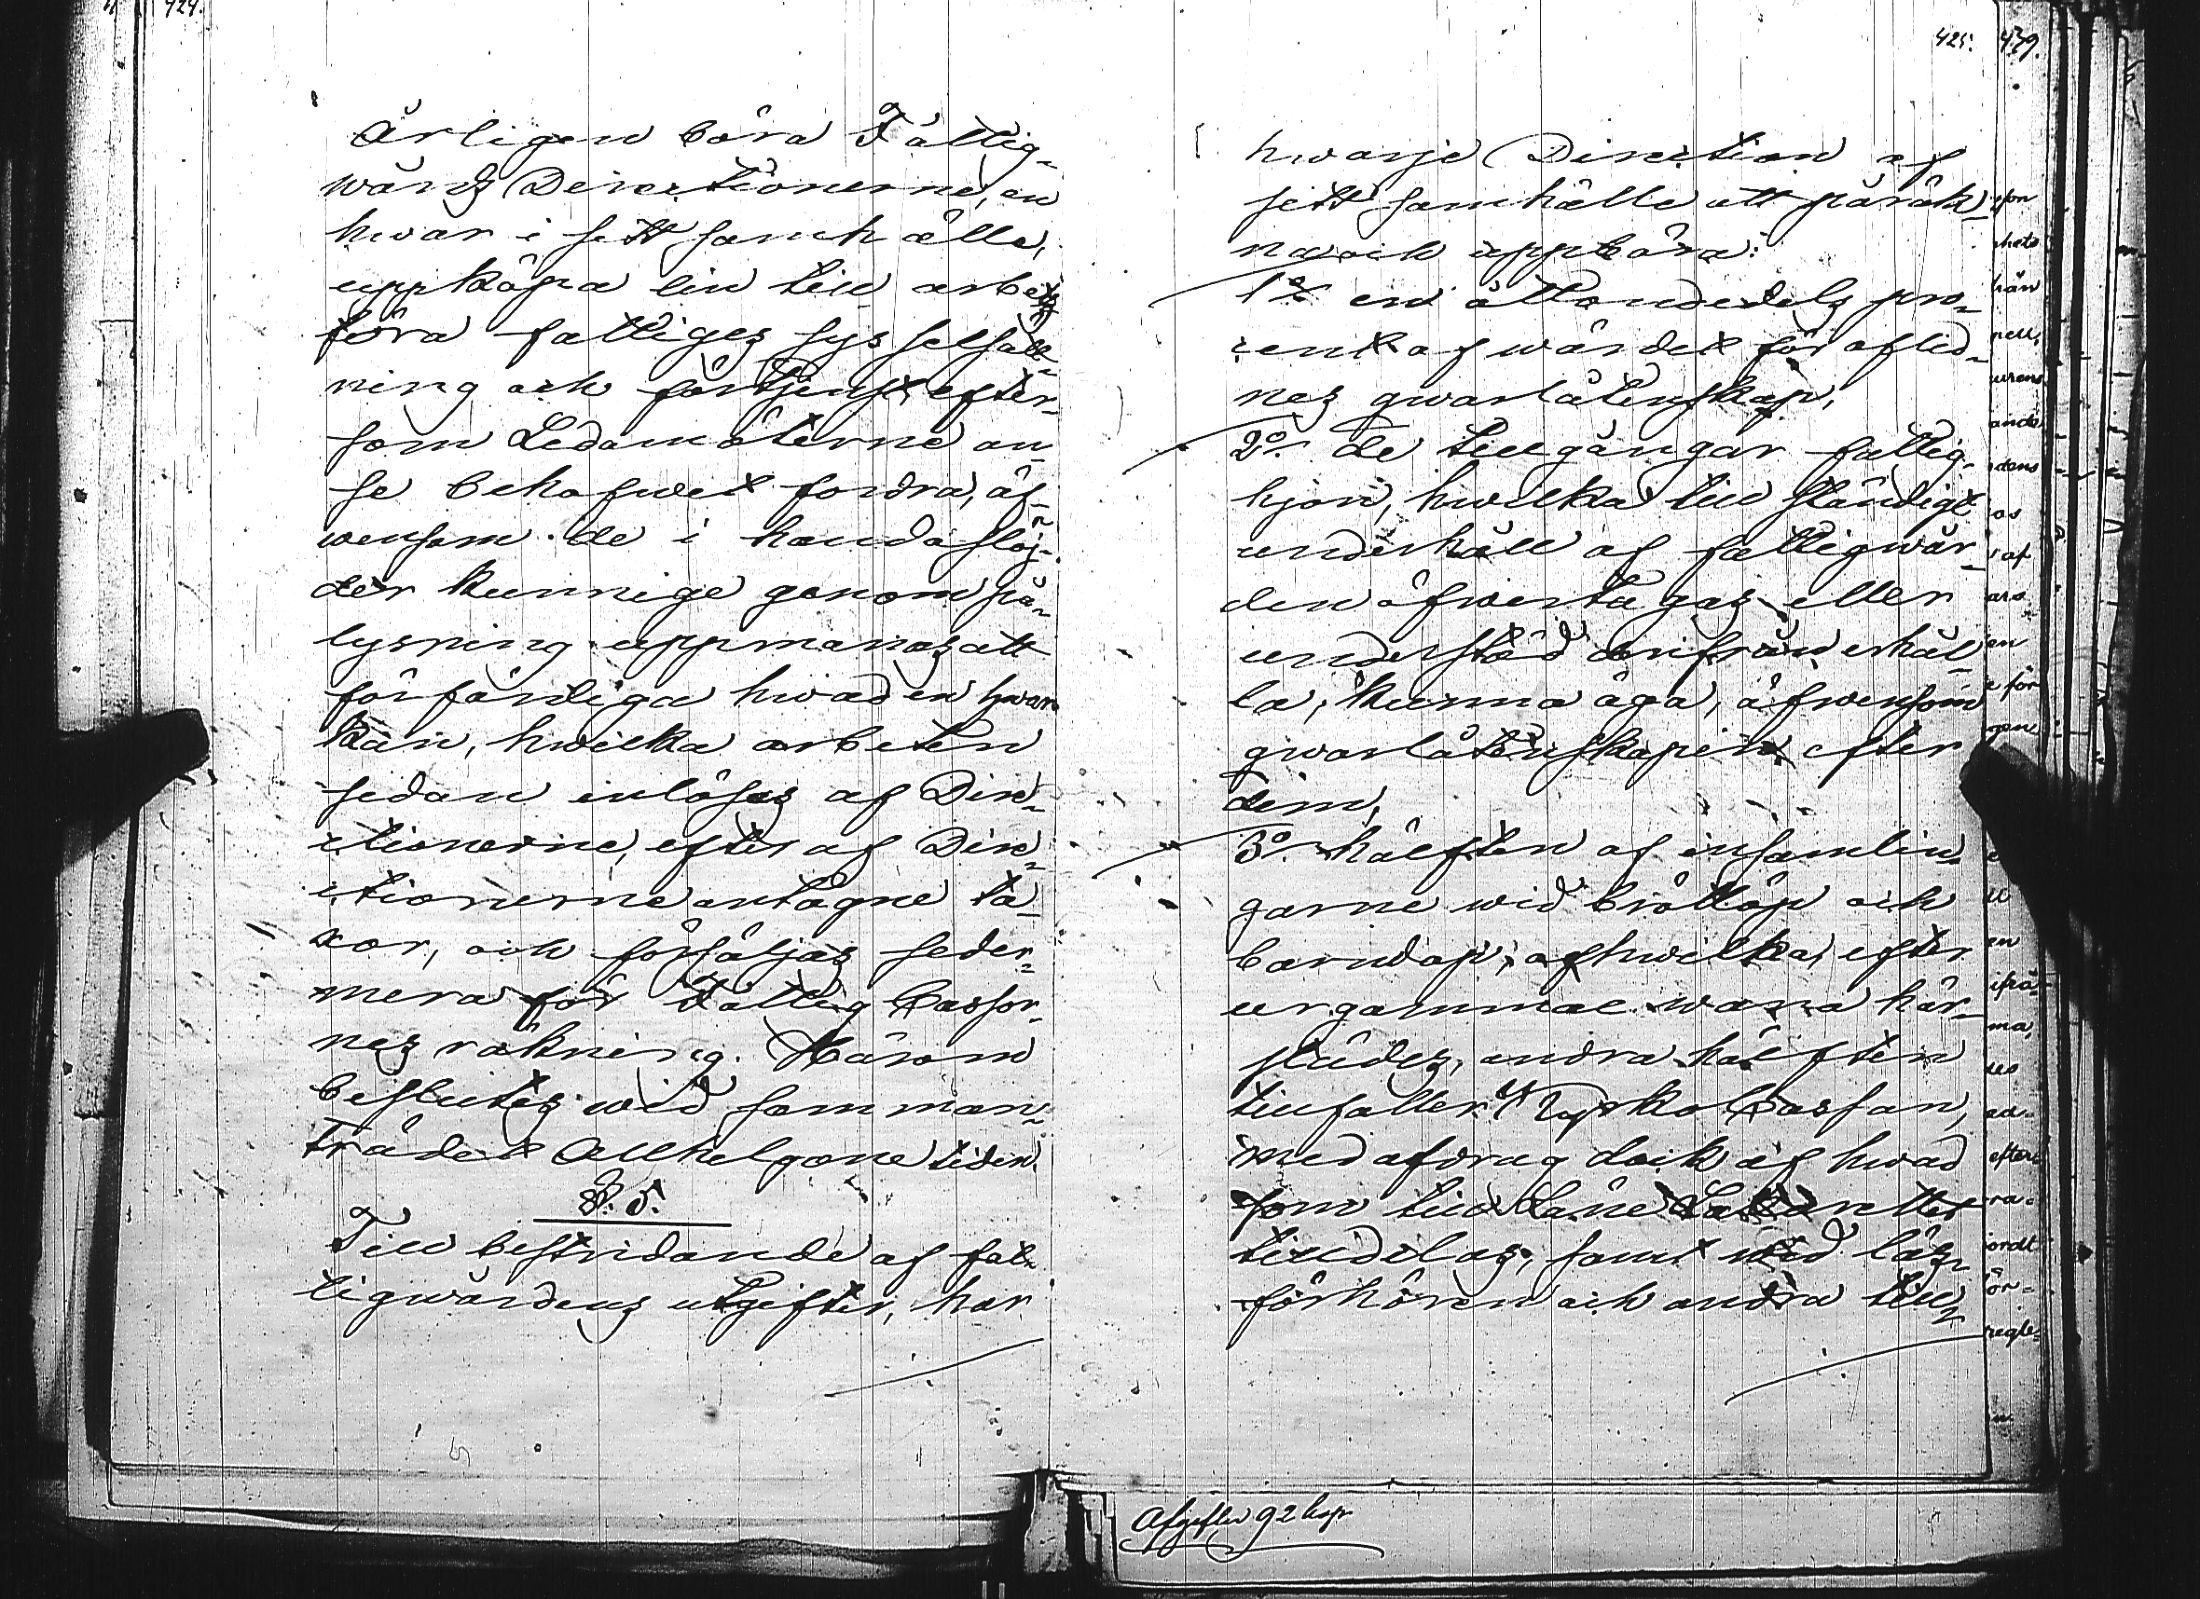 424.
Årligen böra Fattig-
wårds Directionerne, en
hwar i sitt samhälle,
uppköpa lin till arbets
föra fattiges sysselsätt-
ning och förtjenst efter-
som Ledamöterne an-
se behofwet fordra, äf-
wensom de i handaslöj-
der kunnige genom på-
lysning uppmanas att
förfärdiga hwad en hwar
kan, hwilka arbeten
sedan inlösas af Dire-
ctionerne, efter af Dire-
ctionerne antagne ta-
xor, och försäljas seder-
mera för Fattig Cassor-
nes räkning. Härom
beslutes wid samman-
trädet Allhelgone tiden.
§. 5.
Till bestridande af fat-
tigwårdens utgifter, har
425. 479.
hwarje Direction af
sitt samhälle att påräk-
na och uppbära:
1o en åttondedels pro-
cent af wärdet för afled-
nes qwarlåtenskap,
2o. de tillgångar fattig-
hjon, hwilka till ständigt
underhåll af fattigwår-
den öfwertagas eller
understöd derifrån erhål-
la, kunna äga, äfwensom
qwarlåtenskapen efter
dem,
3o. hälften af insamlin-
garne wid bröllop och
barndop, af hwilka, efter
urgammal wana här-
städes, andra hälften
tillfaller Kyrko Cassan,
med afdrag dock af hwad
som till Läne Lazarettet
tilldelas, samt wid läs-
förhören och andra till-
Afgiften 92 kop